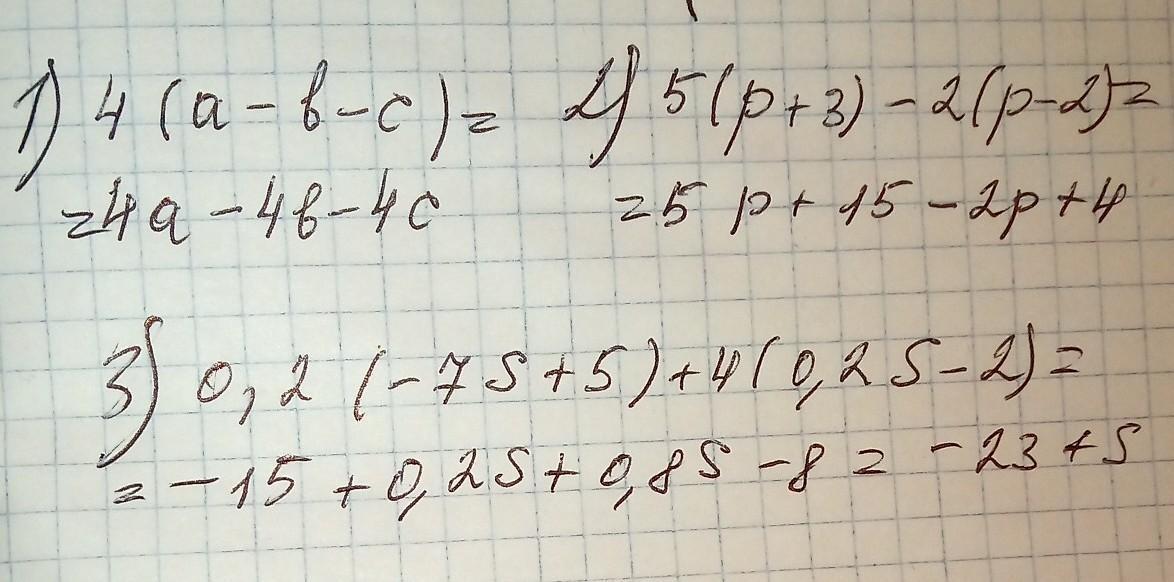 1) 4(a-b-c)= 2) 5(p+3)-2(p-2)=
=4a-4b-4c =5p+15-2p+4
3) 0,2(-7S+5)+4(0,2S-2)=
=-15+0,2S+0,8S-8=-23+S